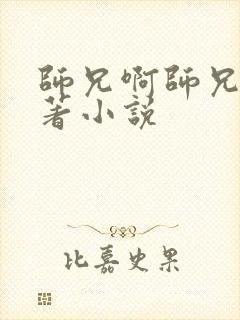 師兄啊師兄
著小說
比嘉史果